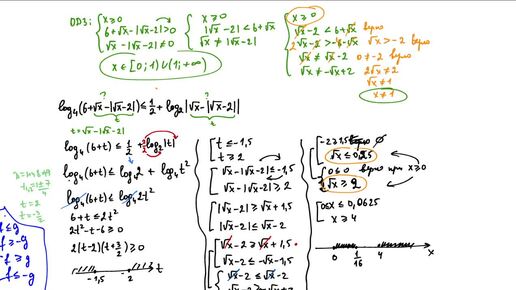 ОДЗ: { x ≥ 0
6+√x-|√x-2|>0
√x-|√x-2|≠0
{ x ≥ 0
|√x-2| < 6+√x
√x ≠ |√x-2|
x ∈ [0;1) ∪ (1;+∞)
{ x ≥ 0
√x-2 < 6+√x верно
√x-2 > -6-√x √x > -2 верно
√x ≠ √x-2 0 ≠ -2 верно
√x ≠ -√x+2 2√x ≠ 2
√x ≠ 1
x ≠ 1
log₄(6+√x-|√x-2|) ≤ 1/2 + log₂|√x-|√x-2||
t = √x-|√x-2|
log₄(6+t) ≤ 1/2 + log₂|t|
log₄(6+t) ≤ log₄2 + log₄t²
log₄(6+t) ≤ log₄2t²
6+t ≤ 2t²
2t²-t-6 ≥ 0
2(t-2)(t+3/2) ≥ 0
-1,5 2 t
t = 2
t = -3/2
[ t ≤ -1,5
t ≥ 2
[ √x-|√x-2| ≤ -1,5
√x-|√x-2| ≥ 2
[ |√x-2| ≥ √x+1,5
|√x-2| ≤ √x-2
[ √x-2 ≥ √x+1,5
√x-2 ≤ -√x-1,5
√x-2 ≤ √x-2
√x ≤ 0,25
0 ≤ 0 верно при x ≥ 0
√x ≥ 2
[ 0≤x ≤ 0,0625
x ≥ 4
0 1/16 4 x
≤ g
≥ -g
-f ≥ g
f ≤ -g